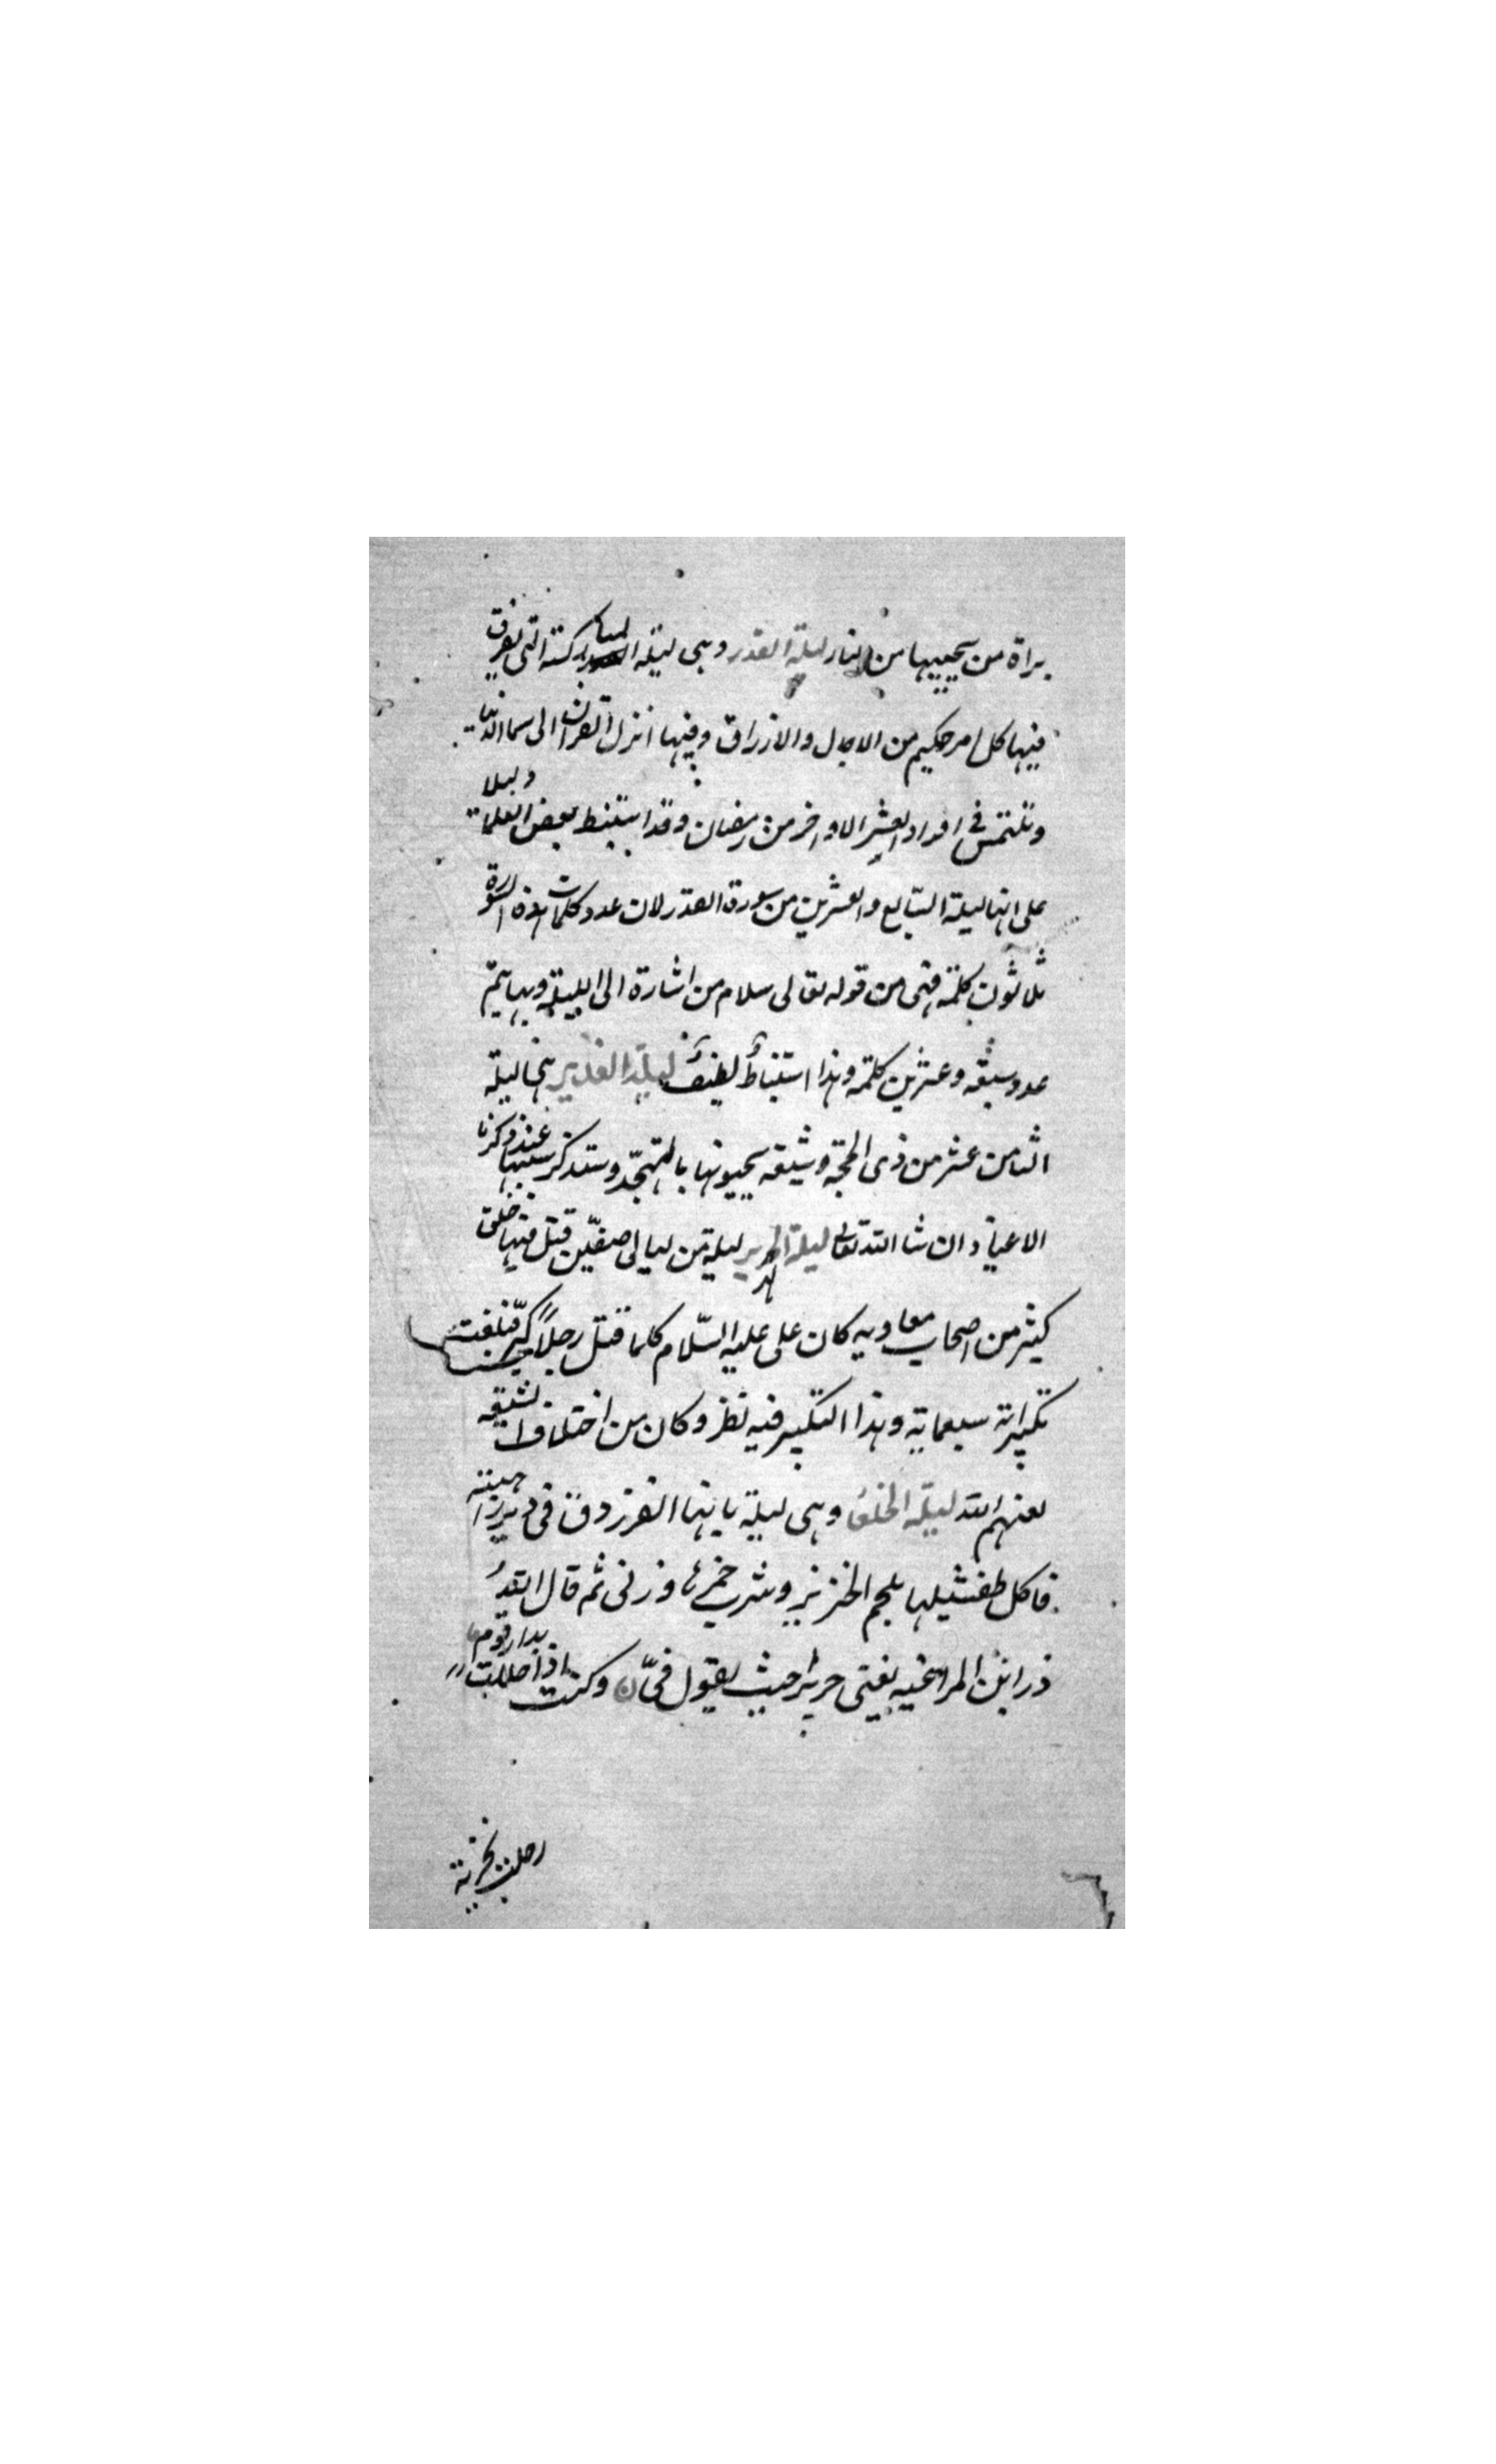 براة من يحييها من النار ليلة القدر وهى ليلة المباركة التى يفرق
فيها كل امر حكيم من الاجال والارزاق وفيها انزل القران الى سما الدنيا
وتلتمس فى افراد العشر الاواخر من رمضان وقد استنبط بعض العلما دليلا
على انها ليلة السابع والعشرين من سورة القدر لان عدد كلمات هذه السورة
ثلاثون كلمة فهى من قوله تعالى سلام من اشارة الى الليلة وبها يتم
عدد سبعة وعشرين كلمة وهذا استنباطٌ لطيفٌ ليلة الغدير هى ليلة
الثامن عشر من ذى الحجة وشيعه يحيونها بالتهجّد وستذكر سببها عند ذكرنا
الاعياد ان شا الله تعالى ليلة الهرير ليلة من ليالى صفّين قتل فيها خلق
كثير من اصحاب معاويه كان على عليه السّلام كلما قتل رجلاً كبّر فبلغت
تكبيراته سبعماية وهذا التكبير فيه نظر وكان من اختلاف الشيعه
لعنهم الله ليلة الخلعا وهى ليلة باتها الفرزدق فى دير راهبة
فاكل طفشيلها بلحم الخنزير وشرب خمرها وزنى ثم قال لله
در ابن المراغيه يعنى جرير حيث يقول فىّ وكنت اذا حللت بدار قوم
رحلت بخزية